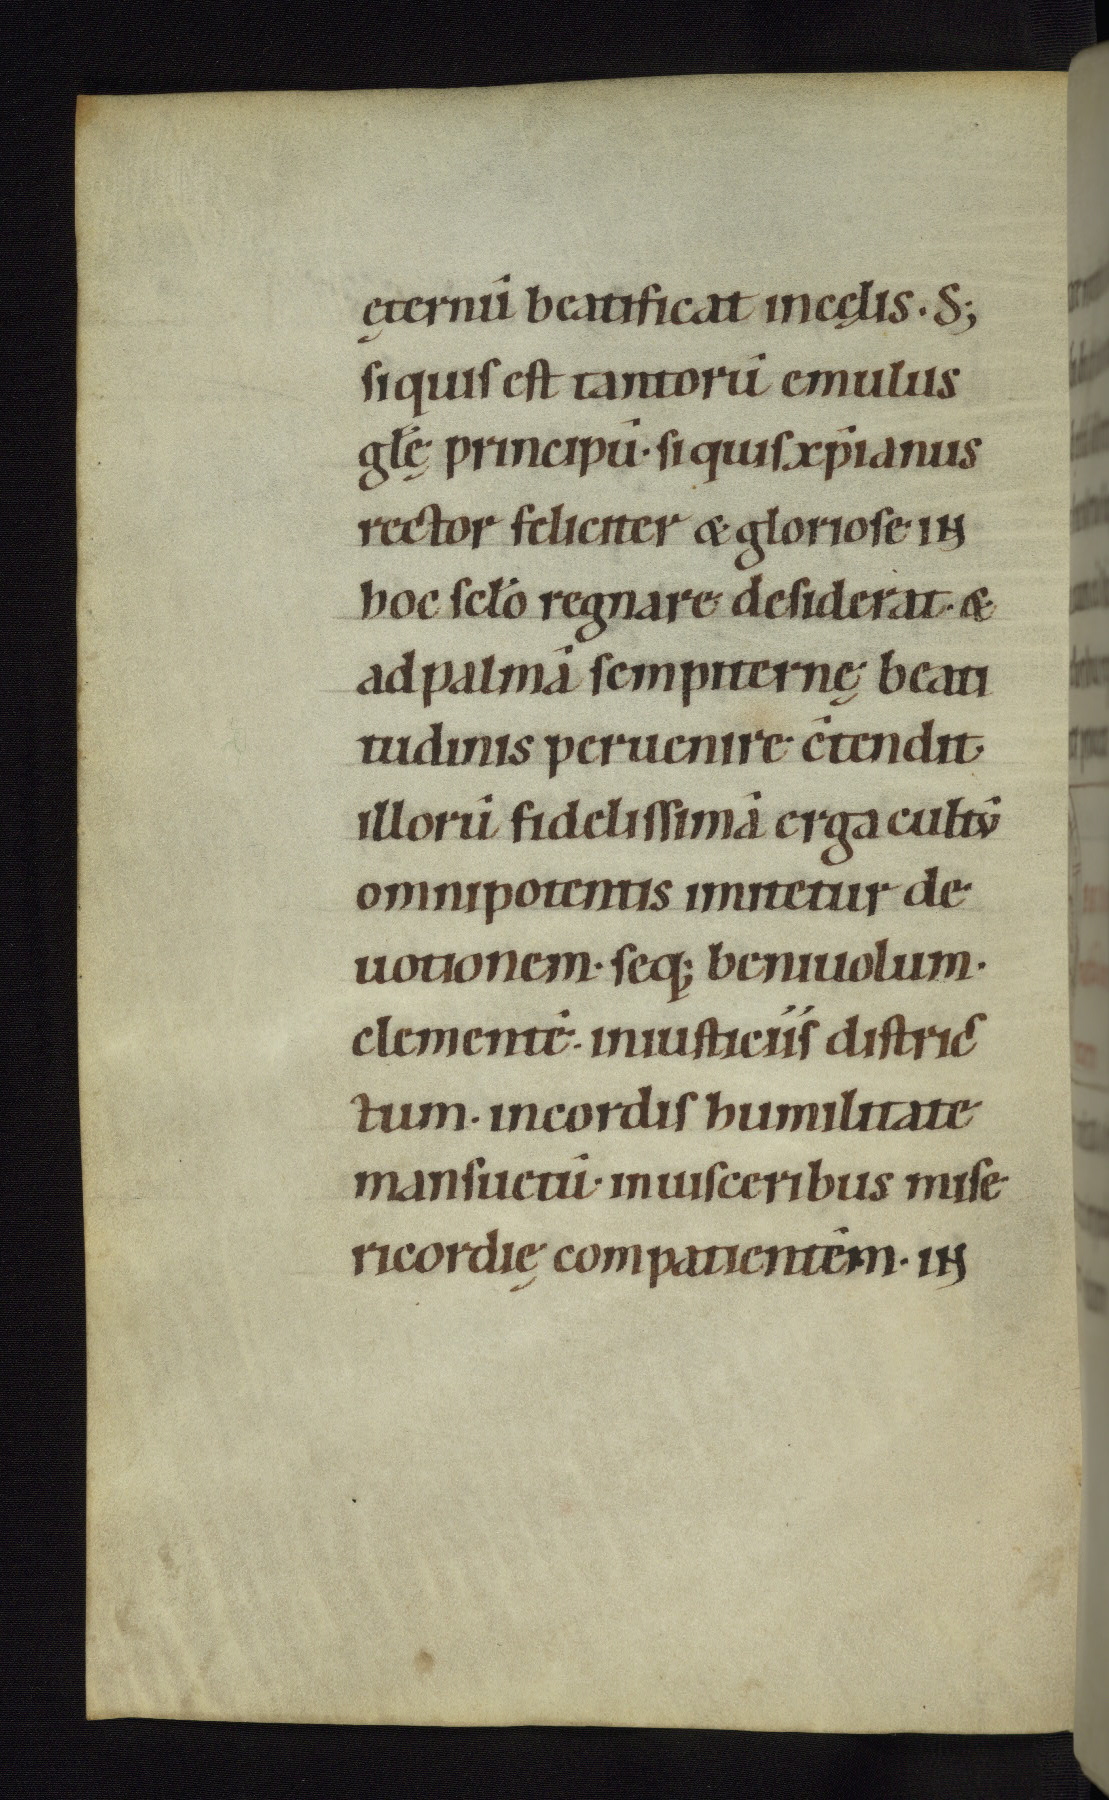 ęternū beatificat in cęlis. S;
si quis est tantorū emulus
głę principū. si quis xp̄ianus
rector feliciter & gloriose in
hoc scło regnare desiderat. &
ad palmā sempiternę beati
tudinis peruenire c̄tendit.
illorū fidelissimā erga cultū
omnipotentis imitetur de
uotionem. seq; beniuolum.
clementē. in iusticiis distric
tum. in cordis humilitate
mansuetū. in uisceribus mise
ricordię compatientem. in